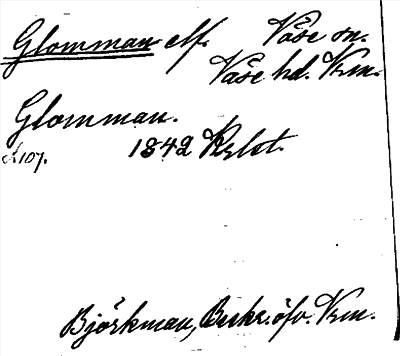 Glomman elf. Väse sn.
Väse hd. Vrm.
Glomman.
1842 Rylst.
Björkman, Beskr. öfv. Vrm.